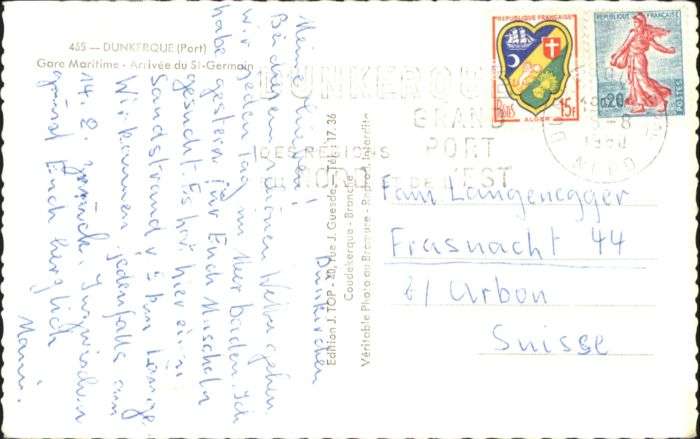 455 — DUNKERQUE (Port)
Gare Maritime - Arrivée du St-Germain
Dünkirchen
Meine Lieben!
Bei diesem schönen Wetter gehen
wir jeden Tag im Meer baden. Ich
habe gestern für Euch Muscheln
gesucht. Es hat hier eine
Sandstrand v. 5 km Länge.
Wir kommen jedenfalls am
14. 8. zurück. Inzwischen
grüsst Euch herzlich
Mami.
Edition J. TOP - 40, rue J. Guesde - Tél. : 17.36
Coudekerque - Branche
Véritable Photo au Bromure - Reprod. Interdite
DUNKERQUE
GRAND
PORT
DES RÉGIONS
DU NORD ET DE L'EST
REPUBLIQUE FRANÇAISE
POSTES 15F
ALGER
REPUBLIQUE FRANÇAISE
0,20
POSTES
1960
NORD
Fam. Langenegger
Frasnacht 44
b/ Arbon
Suisse